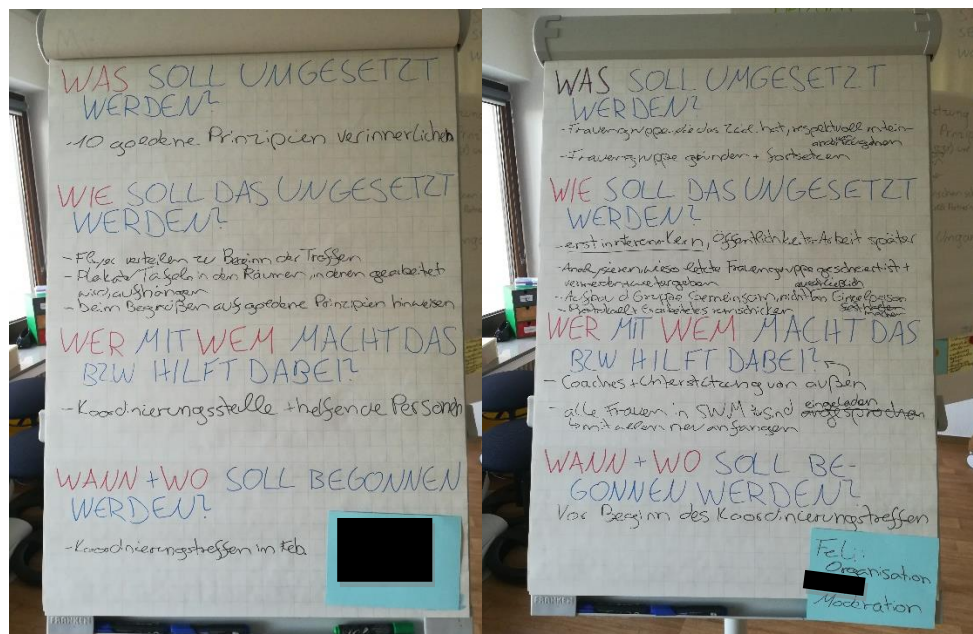 WAS SOLL UMGESETZT
WERDEN?
-10 goldene Prinzipien verinnerlichen
WIE SOLL DAS UNGESETZT
WERDEN?
- Flyer verteilen zu Beginn der Treffen
- Plakate/Tafeln in den Räumen, in denen gearbeitet
wird, aufhängen
- beim Begrüßen auf goldene Prinzipien hinweisen
WER MIT WEM MACHT DAS
BZW HILFT DABEI?
- Koordinierungsstelle + helfende Personen
WANN + WO SOLL BEGONNEN
WERDEN?
- Koordnierungstreffen im Feb.
FRANKEN
WAS SOLL UMGESETZT
WERDEN?
- Frauengruppe die das Ziel hat, respektvoll mitein-
- Frauengruppe gründen + fortsetzen
WIE SOLL DAS UNGESETZT
WERDEN?
- erst innerer Kern, Öffentlichkeits-Arbeit später
- Analysieren wieso letzte Frauengruppe gescheitert ist +
ausschließlich
- Aufbau d Gruppe Gemeinsam, nicht an Einzelperson
WER MIT WEM MACHT DAS
BZW HILFT DABEI?
- Coaches + Unterstützung von außen
eingeladen
- alle Frauen in SWM sind angesprochen
↳ mit allen neu anfangen
WANN + WO SOLL BE-
GONNEN WERDEN?
Vor Beginn des Koordinierungstreffen
FeL:
Organisation
Moderation
FRANKEN